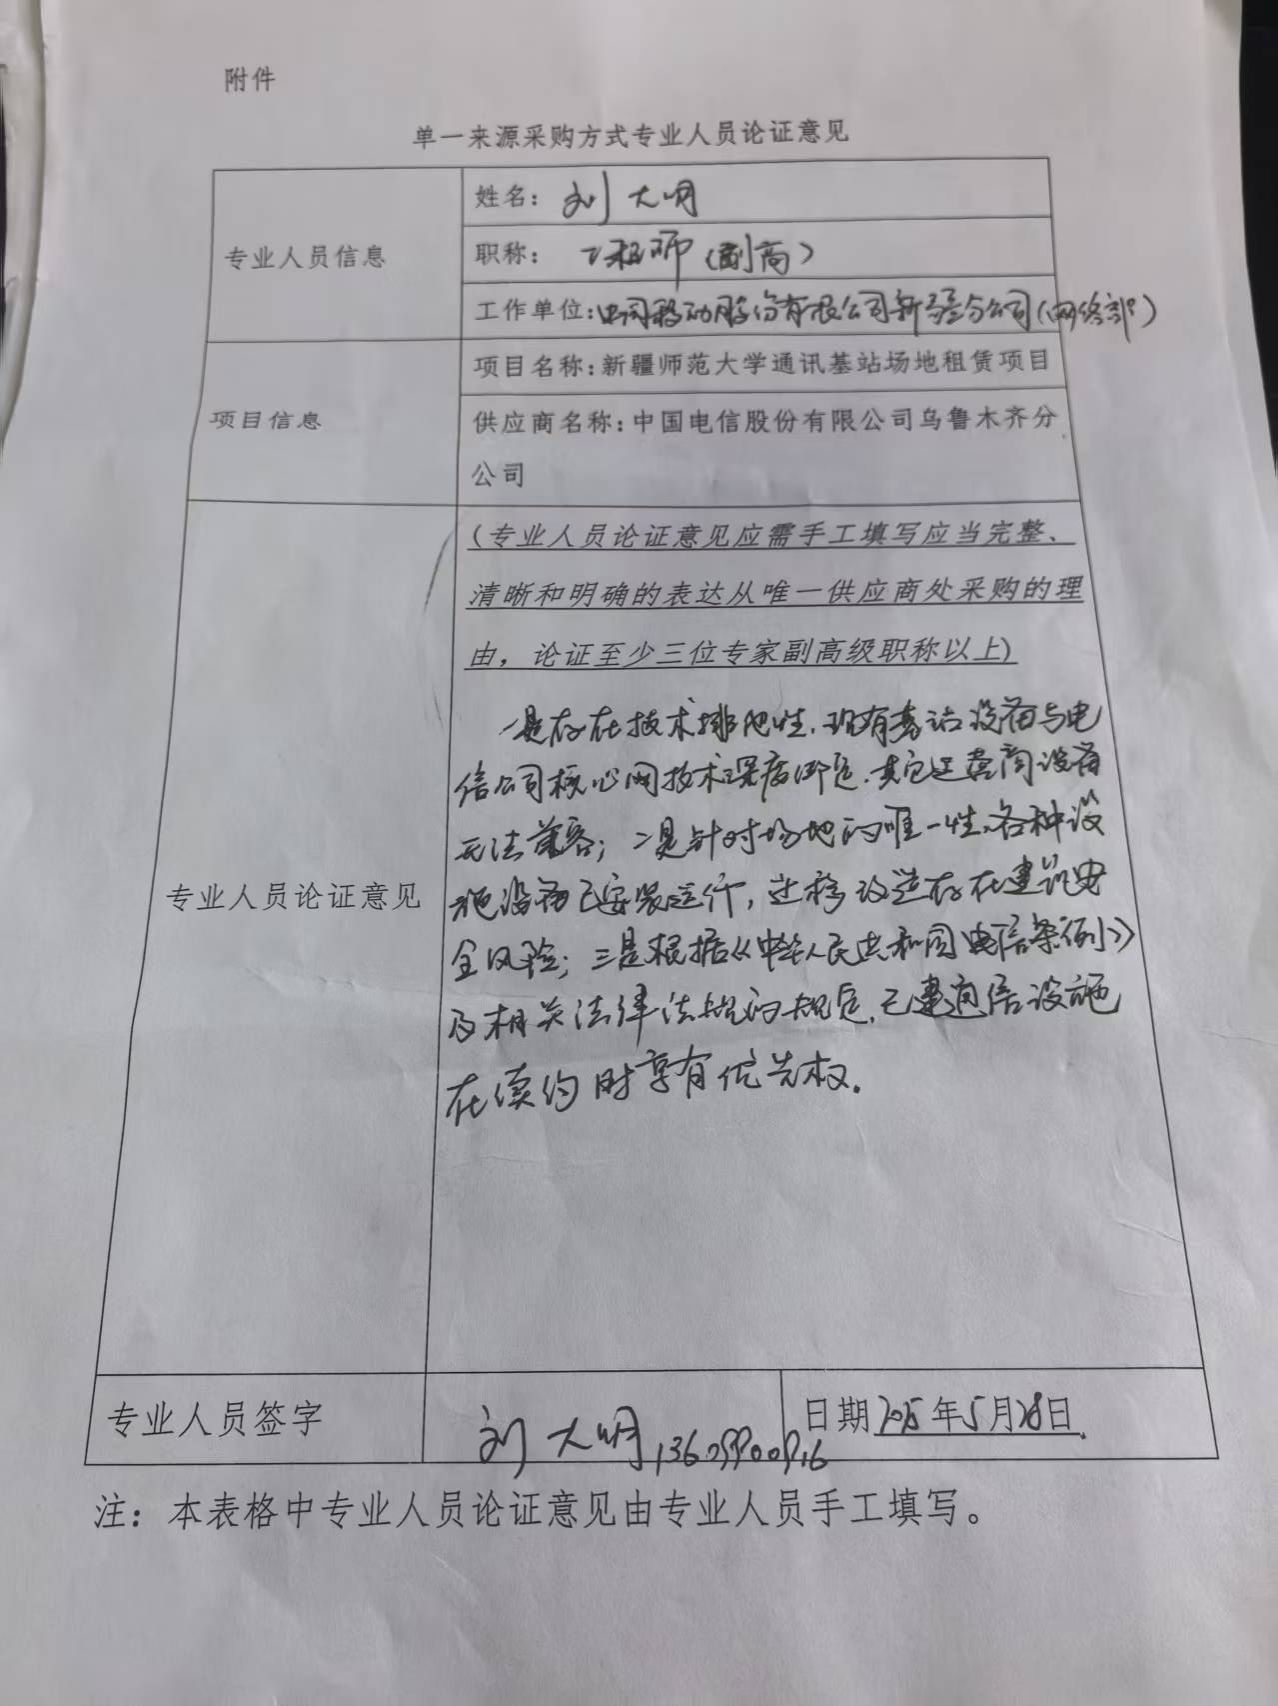 附件
单一来源采购方式专业人员论证意见
专业人员信息
姓名：刘大明
职称：工程师（副高）
工作单位：中国移动股份有限公司新疆分公司（网络部）
项目信息
项目名称：新疆师范大学通讯基站场地租赁项目
供应商名称：中国电信股份有限公司乌鲁木齐分
公司
专业人员论证意见
（专业人员论证意见应需手工填写应当完整、
清晰和明确的表达从唯一供应商处采购的理
由，论证至少三位专家副高级职称以上）
一是存在技术排他性，现有基站设备与电
信公司核心网技术深度绑定，其它运营商设备
无法兼容；二是针对场地的唯一性，各种设
施设备已安装运行，迁移改造存在建筑安
全风险；三是根据《中华人民共和国电信条例》
及相关法律法规的规定，已建通信设施
在续约时享有优先权。
专业人员签字
刘大明
日期2025年5月28日.
注：本表格中专业人员论证意见由专业人员手工填写。